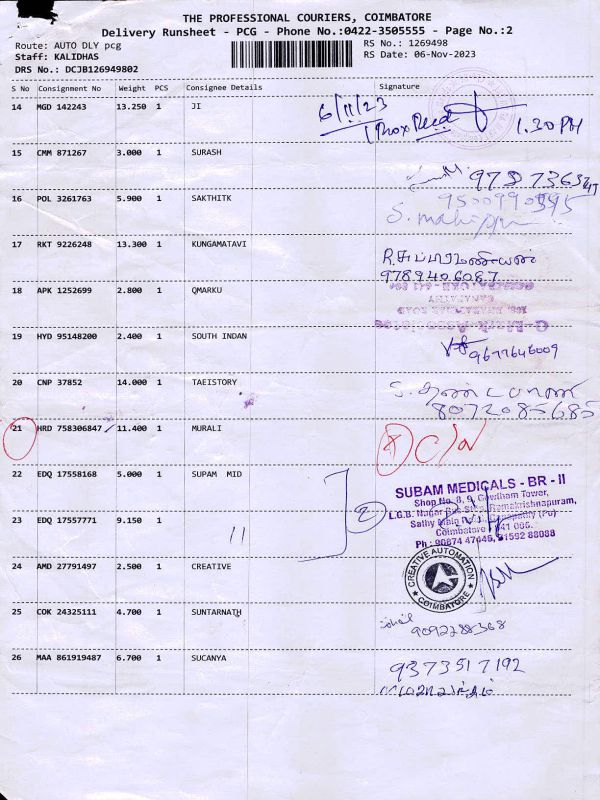 THE PROFESSIONAL COURIERS, COIMBATORE
Delivery Runsheet - PCG - Phone No.:0422-3505555 - Page No.:2
Route: AUTO DLY pcg
RS No.: 1269498
Staff: KALIDHAS
RS Date: 06-Nov-2023
DRS No.: DCJB126949802
S No Consignment No Weight PCS Consignee Details Signature
14 MGD 142243 13.250 1 JI
6/11/23
1 Box Recd 1.30 PM
15 CMM 871267 3.000 1 SURASH
16 POL 3261763 5.900 1 SAKTHITK
17 RKT 9226248 13.300 1 KUNGAMATAVI
R.சுப்பிரமணியன்
9789406087
18 APK 1252699 2.800 1 QMARKU
Q-Mark Associates
GANAPATHY
19 HYD 95148200 2.400 1 SOUTH INDAN
9677646009
20 CNP 37852 14.000 1 TAEISTORY
8072085685
21 HRD 758306847 11.400 1 MURALI
C/N
22 EDQ 17558168 5.000 1 SUPAM MID
SUBAM MEDICALS - BR - II
Shop No. 8, 9, Gowtham Tower,
L.G.B. Nagar Bus Stop, Ramakrishnapuram,
Sathy Main Ganapathy (Po)
Coimbatore - 641 006.
Ph : 90874 47446, 91592 88088
2
23 EDQ 17557771 9.150 1 11
24 AMD 27791497 2.500 1 CREATIVE
CREATIVE AUTOMATION
COIMBATORE
25 COK 24325111 4.700 1 SUNTARNATH
9092288368
26 MAA 861919487 6.700 1 SUCANYA
9373517192